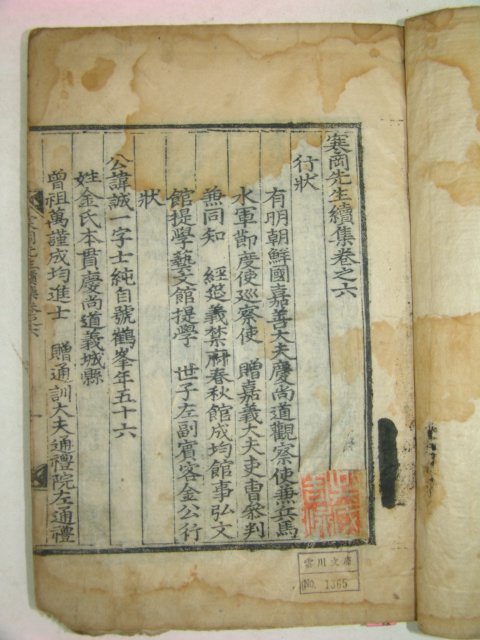 寒岡先生續集卷之六
行狀
有明朝鮮國嘉善大夫慶尚道觀察使兼兵馬
水軍節度使巡察使 贈嘉義大夫吏曹參判
兼同知 經筵義禁府春秋館成均館事弘文
館提學藝文館提學 世子左副賓客金公行
狀
公諱誠一字士純自號鶴峯年五十六
姓金氏本貫慶尚道義城縣
曾祖萬謹成均進士 贈通訓大夫通禮院左通禮
雲川文庫
No. 1365